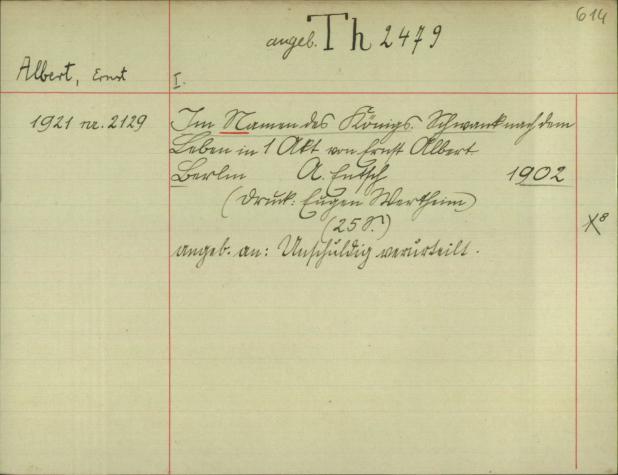 614
angeb. Th 2479
Albert, Ernst
I.
1921 nr. 2129
Im Namen des Königs. Schwank nach dem
Leben in 1 Akt von Ernst Albert
Berlin A. Entsch 1902
(Druck: Eugen Wertheim)
(25 S.)
X8
angeb. an: Unschuldig verurteilt.